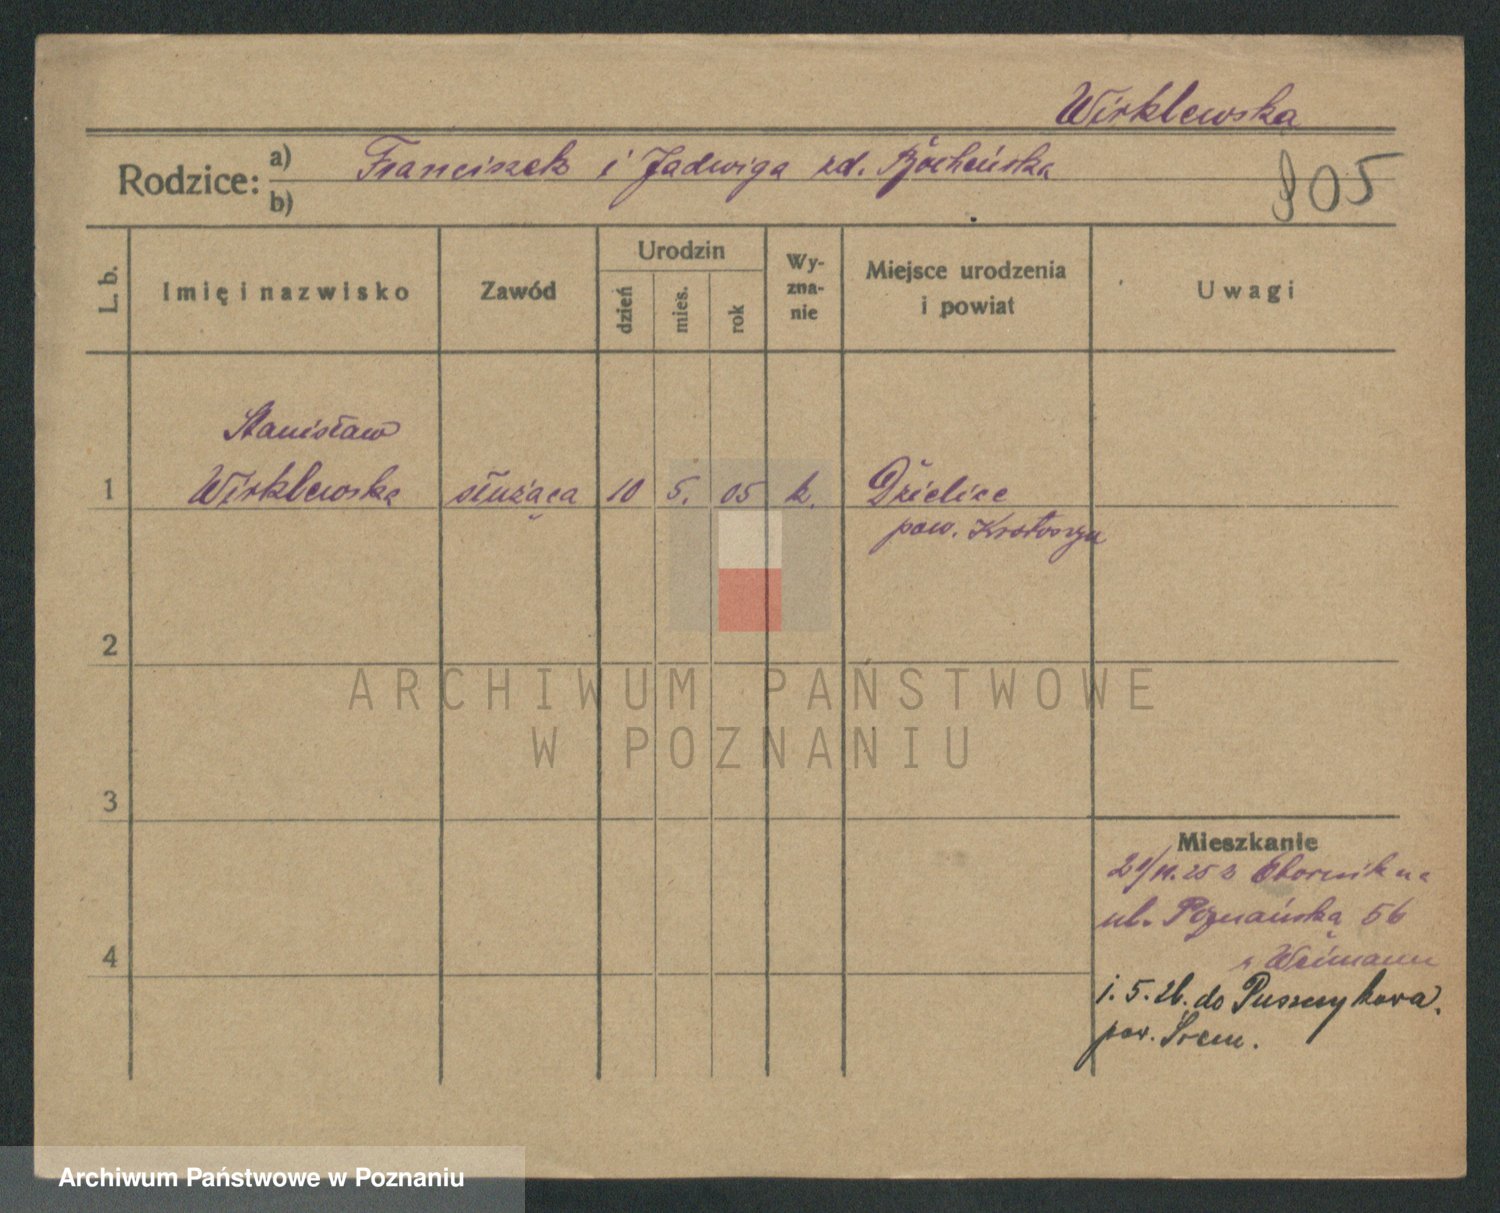 Wirklewska
Rodzice: a) Franciszek i Jadwiga zd. Bocheńska
b)
905
L. b.
Imię i nazwisko
Zawód
Urodzin
dzień
mies.
rok
Wy-
zna-
nie
Miejsce urodzenia
i powiat
Uwagi
Stanisław
1 Wirklewska służąca 10 5. 05 k. Dzielice
pow. Krotoszyn
2
3
4
ARCHIWUM PAŃSTWOWE
W POZNANIU
Mieszkanie
25 z Obornik na
ul. Poznańska 56
Weimann
1. 5. 26. do Puszczykowa.
pow. Śrem.
Archiwum Państwowe w Poznaniu